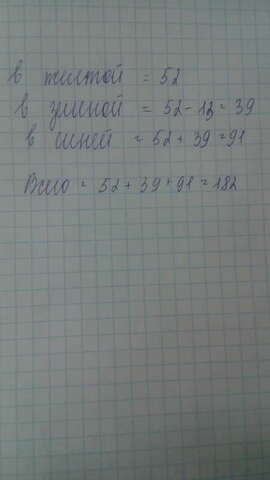 в желтой = 52
в зеленой = 52 - 13 = 39
в синей = 52 + 39 = 91
Всего = 52 + 39 + 91 = 182